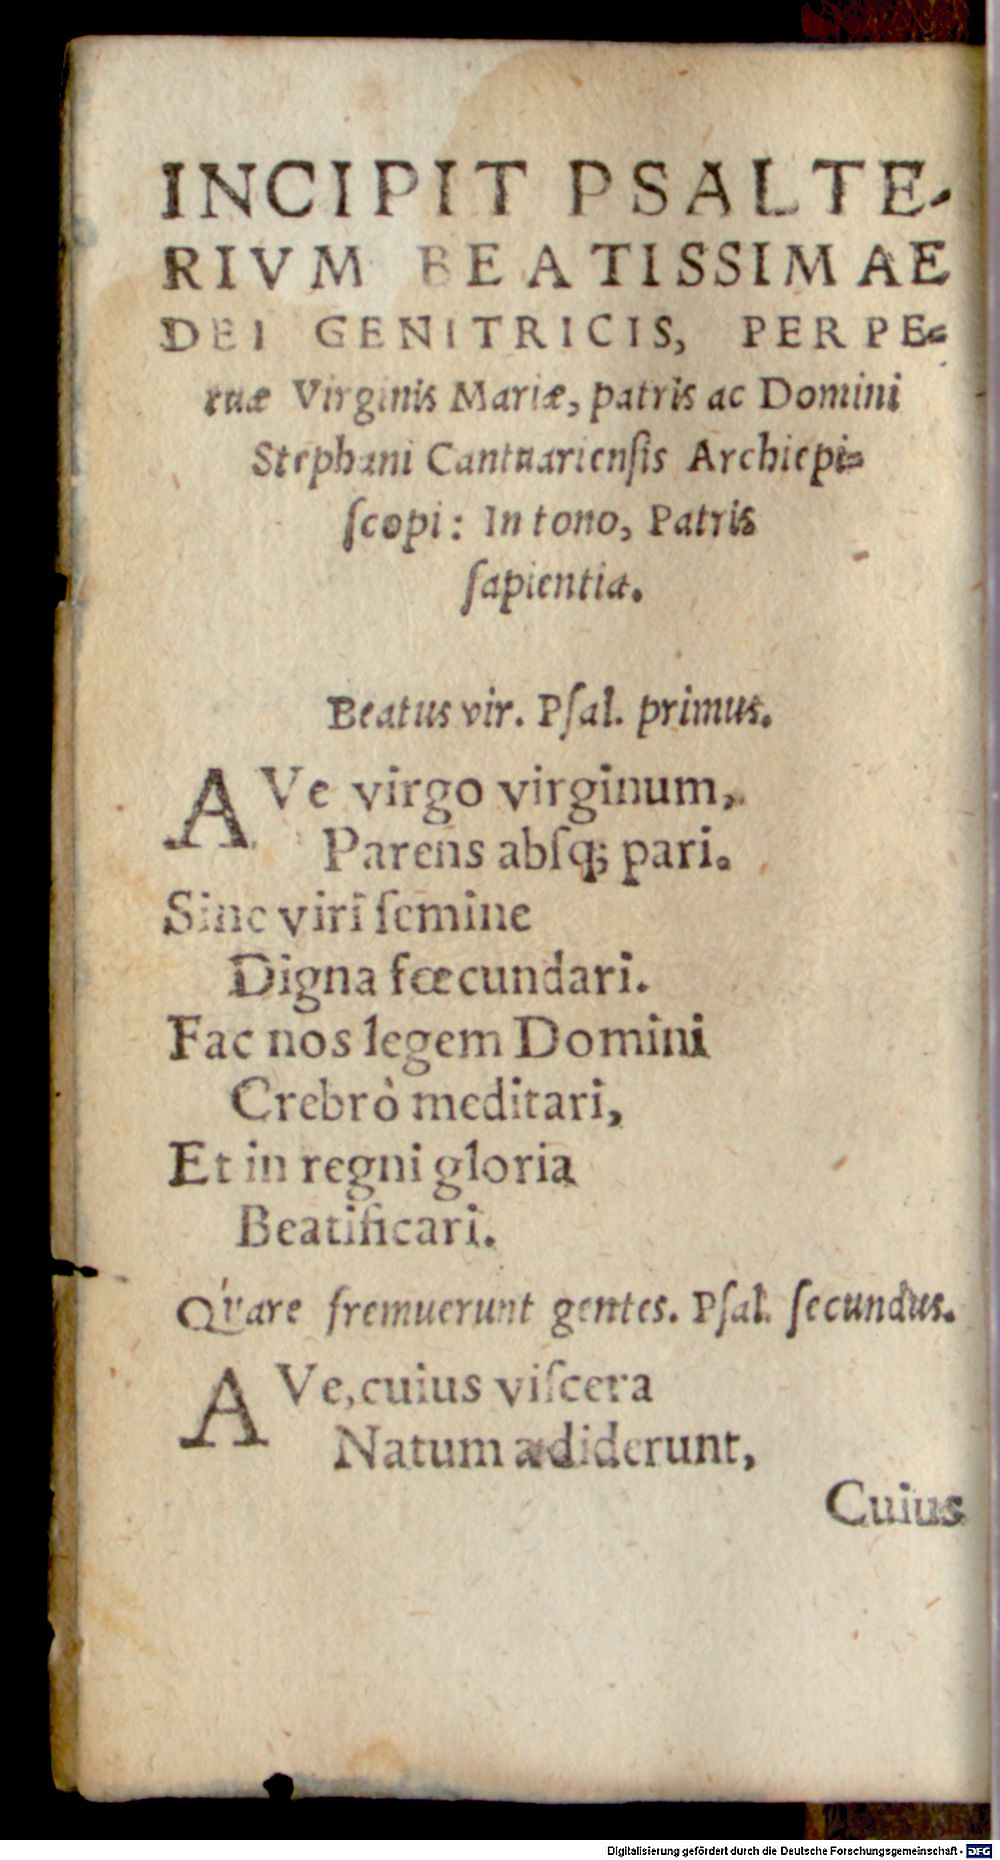 INCIPIT PSALTE-
RIVM BEATISSIMAE
DEI GENITRICIS, PERPE=
tuæ Virginis Mariæ, patris ac Domini
Stephani Cantuariensis Archiepi=
ſcopi: In tono, Patris
ſapientia.
Beatus vir. Pſal. primus.
AVe virgo virginum,
Parens abſq; pari.
Sine viri ſemine
Digna fœcundari.
Fac nos legem Domini
Crebrò meditari,
Et in regni gloria
Beatificari.
Quare fremuerunt gentes. Pſal. ſecundus.
AVe, cuius viſcera
Natum ædiderunt,
Cuius
Digitalisierung gefördert durch die Deutsche Forschungsgemeinschaft - DFG